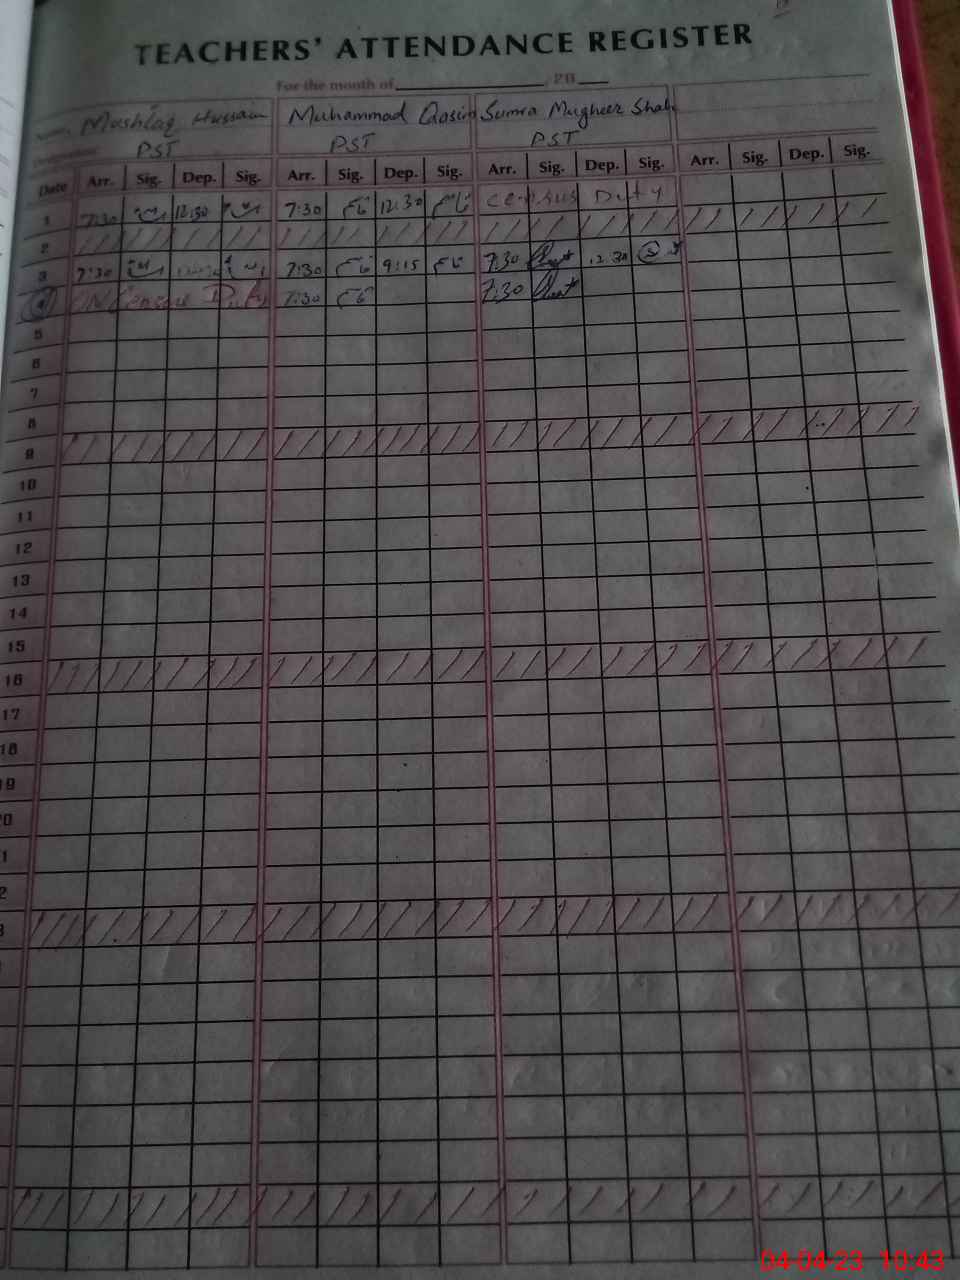 TEACHERS' ATTENDANCE REGISTER
For the month of 20
Mushtaq Hussain Muhammad Qasim Sumra Mugheer Shah
PST PST PST
Date Arr. Sig. Dep. Sig. Arr. Sig. Dep. Sig. Arr. Sig. Dep. Sig. Arr. Sig. Dep. Sig.
1 7:30 12:30 7:30 12:30 Census Duty
2
3 7:30 7:30 9:15 7:30 12:30
4 ON Census Duty 7:30 7:30
5
6
7
8
9
10
11
12
13
14
15
16
17
18
19
20
1
2
3
04-04-23 10:43